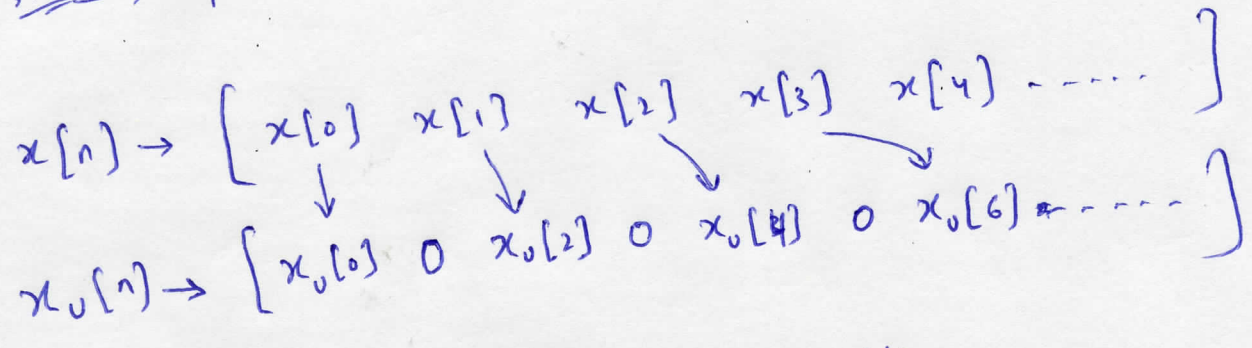 x[n] → [ x[0] x[1] x[2] x[3] x[4] ----- ]
x_u[n] → [ x_u[0] 0 x_u[2] 0 x_u[4] 0 x_u[6] ------ ]